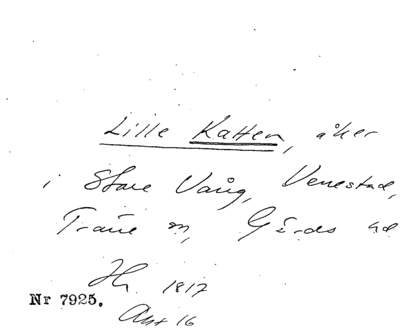 Lille Katten, åker
i Store Vång, Venestad,
Träne sn, Gärds hd
Hy 1817
Nr 7925.
Akt 16